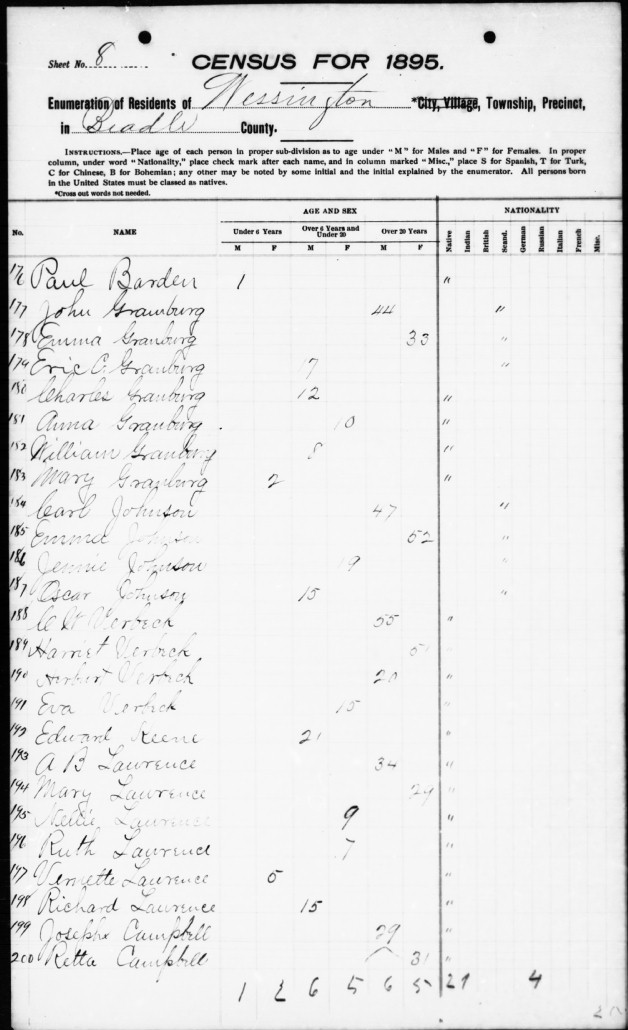 Sheet No. 8
CENSUS FOR 1895.
Enumeration of Residents of Wessington *City, Village, Township, Precinct,
in Beadle County.
INSTRUCTIONS.—Place age of each person in proper sub-division as to age under "M" for Males and "F" for Females. In proper
column, under word "Nationality," place check mark after each name, and in column marked "Misc.," place S for Spanish, T for Turk,
C for Chinese, B for Bohemian; any other may be noted by some initial and the initial explained by the enumerator. All persons born
in the United States must be classed as natives.
*Cross out words not needed.
AGE AND SEX NATIONALITY
No. NAME Under 6 Years Over 6 Years and Under 20 Over 20 Years Native Indian British Scand. German Russian Italian French Misc.
M F M F M F
176 Paul Barden 1 "
177 John Granburg 44 "
178 Emma Granburg 33 "
179 Eric C. Granburg 17 "
180 Charles Granburg 12 "
181 Anna Granburg 10 "
182 William Granburg 8 "
183 Mary Granburg 2 "
184 Carl Johnson 47 "
185 Emma Johnson 52 "
186 Jennie Johnson 19 "
187 Oscar Johnson 15 "
188 Verbeck 55 "
189 Harriet Verbeck "
190 Herbert Verbeck 20 "
191 Eva Verbeck 15 "
192 Edward Keene 21 "
193 A B Lawrence 34 "
194 Mary Lawrence 29 "
195 Nellie Lawrence 9 "
196 Ruth Lawrence 7 "
197 Vernette Lawrence 5 "
198 Richard Lawrence 15 "
199 Josephs Campbell 29 "
200 Retta Campbell 31 "
1 2 6 5 6 5 21 4